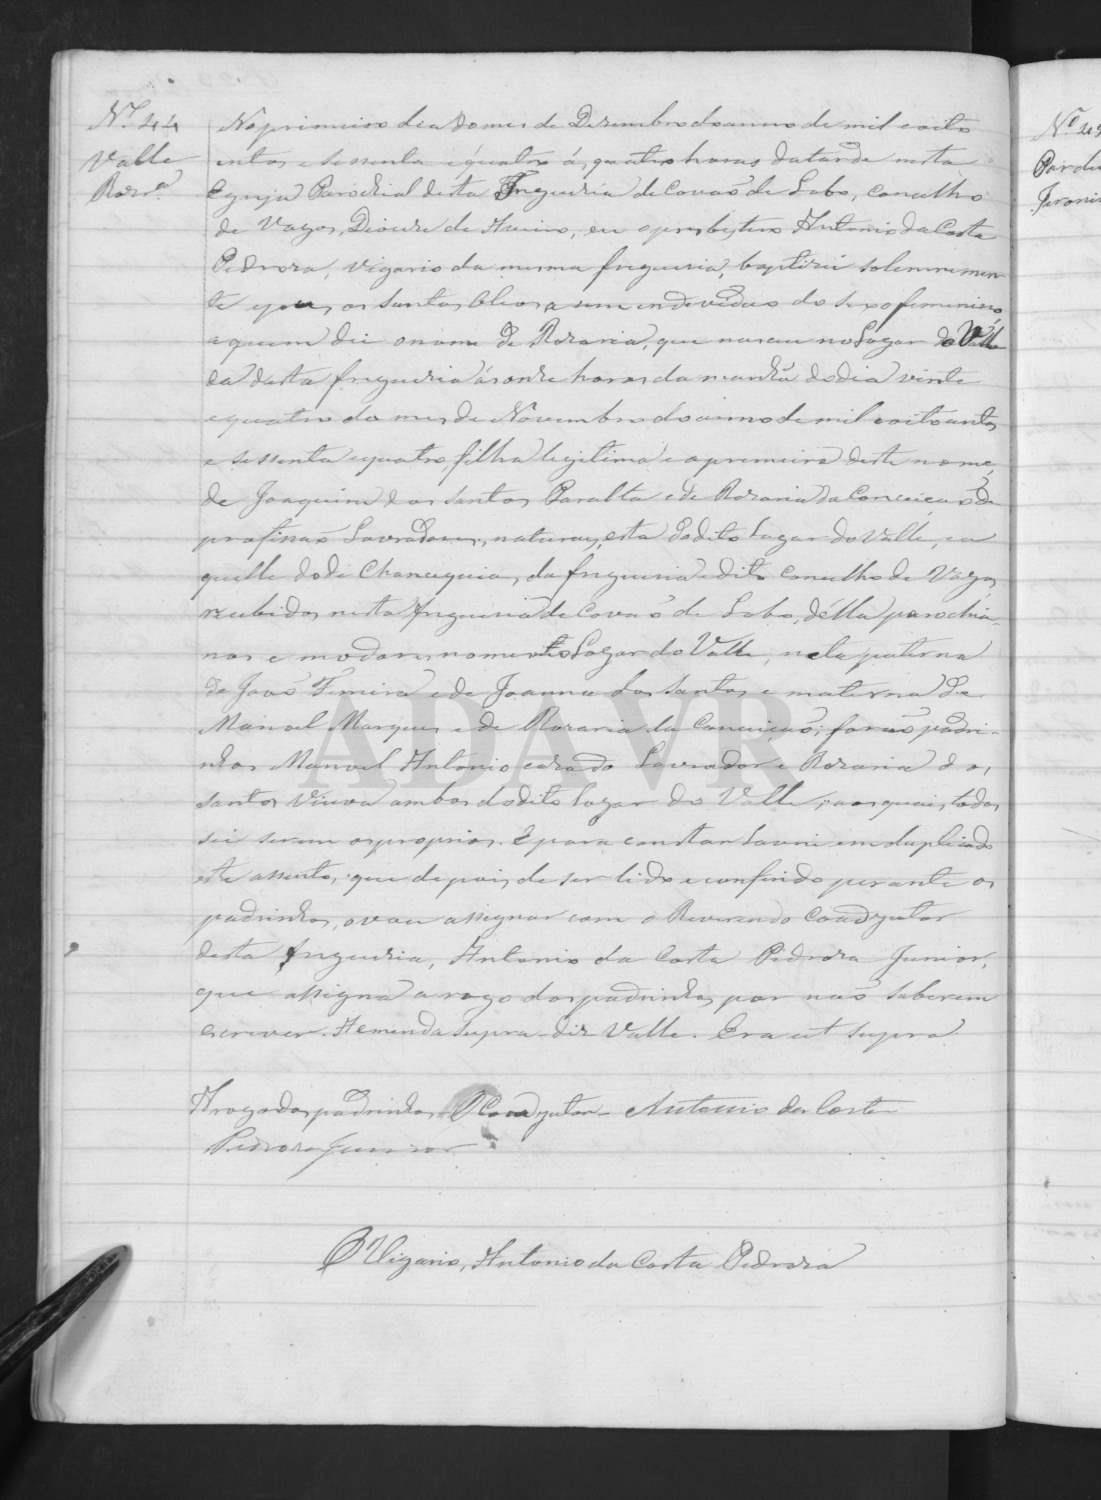 Nº 44
Valle
Rozrª
No primeiro dia do mes de Dezembro do anno de mil e oito
centos e sessenta e quatro ás quatro horas da tarde nesta
Egreja Parochial desta Freguezia de Covaõ de Lobo, concelho
de Vagos, Diocese de Aveiro, eu o presbytero Antonio da Costa
Pedroza, vigario da mesma freguesia, baptizei solemnemen
te e puz os santos oleos a um individuo do sexo feminino
a quem dei o nome de Rozaria, que nasceu no Lugar do Valle
desta freguezia ás onze horas da manhã do dia vinte
e quatro do mes de Novembro do anno de mil e oitocentos
e sessenta e quatro, filha legitima e a premeira deste nome,
de Joaquim dos Santos Paralta e de Rozaria da Conceiçaõ de
profissaõ Lavradores, naturaes, esta do dito Lugar do Valle, ea
quelle do de Chancequia, da freguezia e dito concelho de Vagos
recebidos nesta freguezia de Covaõ de Lobo, délla parochia-
nos e moradores no mesmo Lugar do Valle, neta paterna
de Joaõ Ferreira e de Joanna dos Santos e materna de
Manoel Marques e de Rozaria da Conceiçaõ; foraõ padri-
nhos Manoel Antonio cazado Lavrador e Rozaria dos
santos Viuva ambos do dito lugar do Valle, aos quais todos
sei serem os proprios. E para constar lavrei em duplicado
este assento, que depois de ser lido e conferido perante os
padrinhos, o vou assignar com o Reverendo Coadjutor
desta freguezia, Antonio da Costa Pedroza Junior,
que assigna a rogo dos padrinhos por naõ saberem
escrever. A emenda supra-diz Valle. Era ut supra
A rogo dos padrinhos O Coadjutor - Antonio da Costa
Pedroza Junior
O Vigario, Antonio da Costa Pedroza
ADAVR
Nº 42
Jeroni